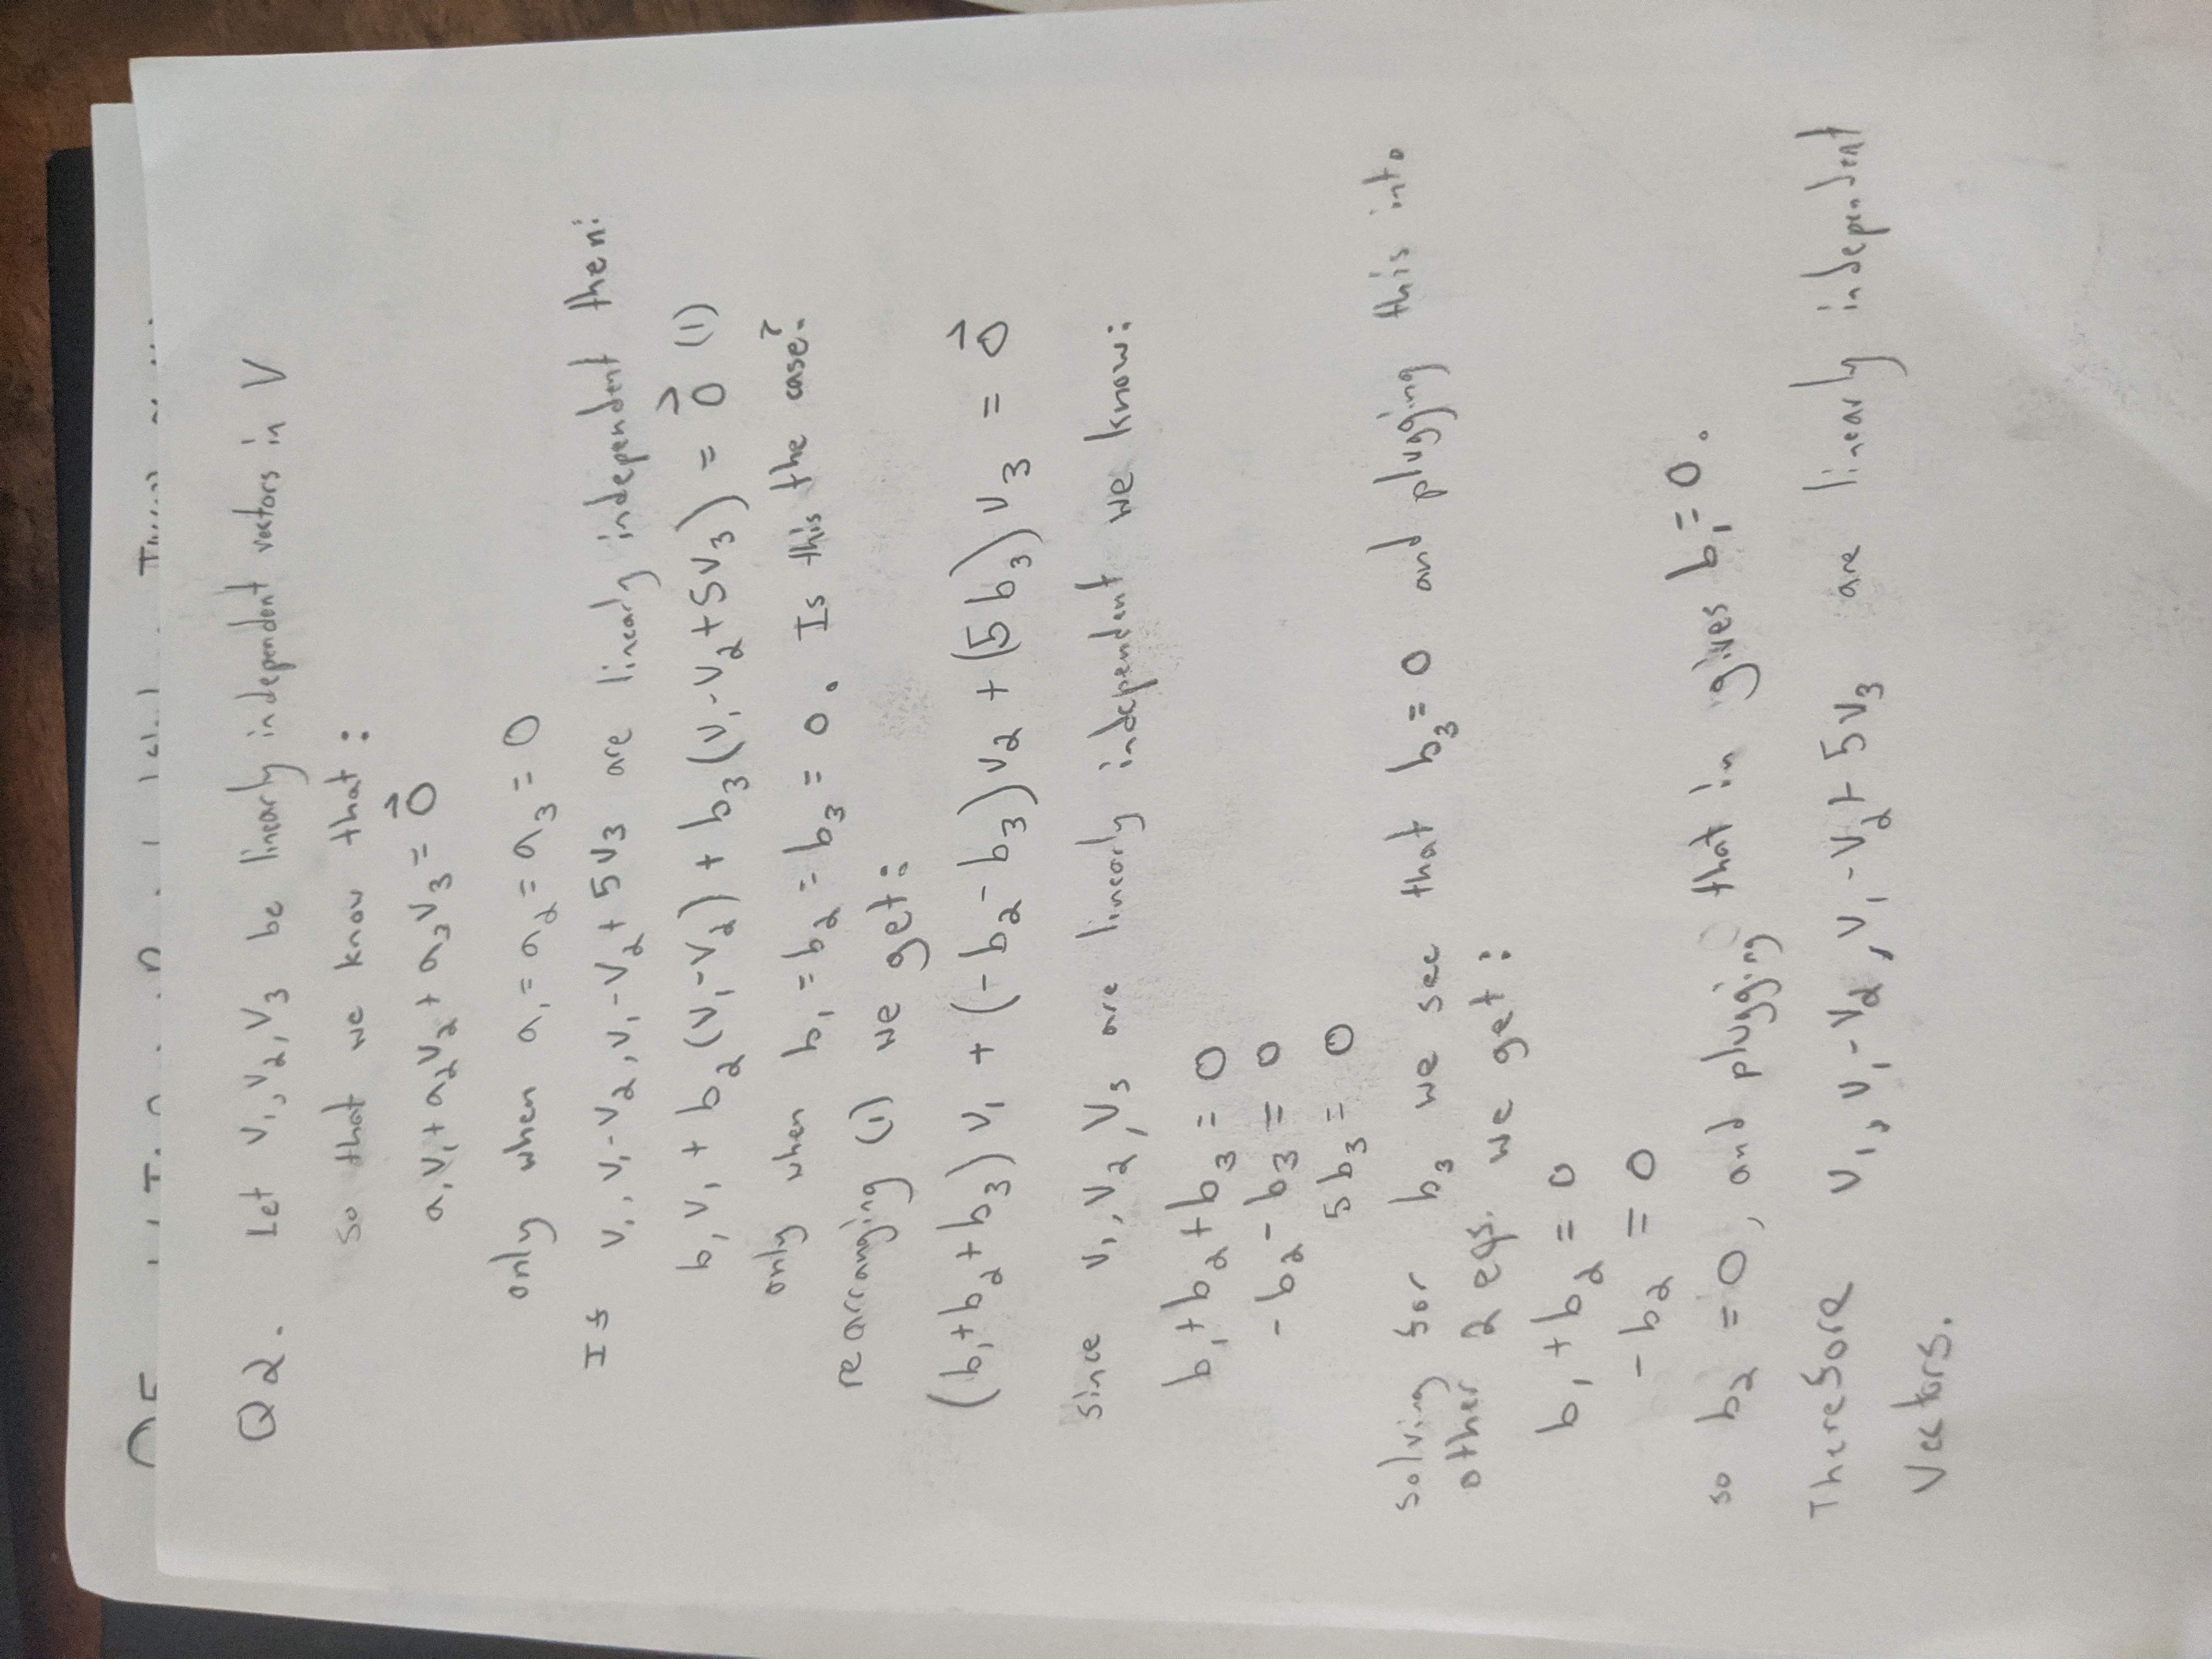 Q2. Let v₁, v₂, v₃ be linearly independent vectors in V
so that we know that:
a₁v₁ + a₂v₂ + a₃v₃ = 0⃗
only when a₁ = a₂ = a₃ = 0
If v₁, v₁-v₂, v₁-v₂+5v₃ are linearly independent then:
b₁v₁ + b₂(v₁-v₂) + b₃(v₁-v₂+5v₃) = 0⃗ (1)
only when b₁ = b₂ = b₃ = 0. Is this the case?
rearranging (1) we get:
(b₁+b₂+b₃)v₁ + (-b₂-b₃)v₂ + (5b₃)v₃ = 0⃗
since v₁, v₂, v₃ are linearly independent we know:
b₁+b₂+b₃ = 0
-b₂-b₃ = 0
5b₃ = 0
solving for b₃ we see that b₃ = 0 and plugging this into
other 2 eqs. we get:
b₁+b₂ = 0
-b₂ = 0
so b₂ = 0, and plugging that in gives b₁ = 0.
Therefore v₁, v₁-v₂, v₁-v₂+5v₃ are linearly independent
vectors.